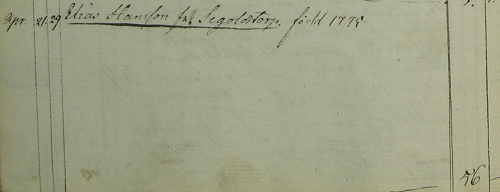 Apr. 21. 29 Elias Hansson frå Segolstorp, född 1775
56